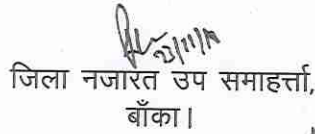 23/11/19
जिला नजारत उप समाहर्त्ता,
बाँका।